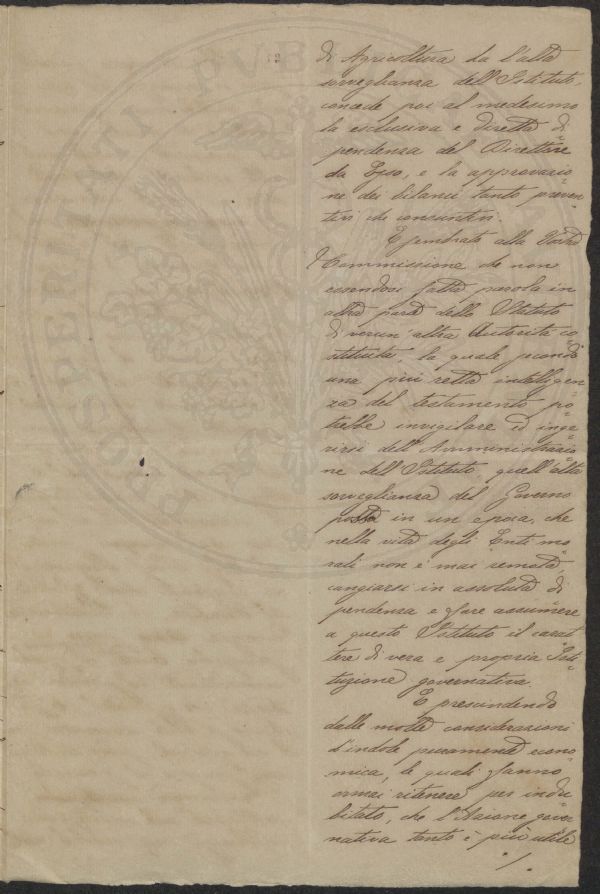 di Agricoltura ha l'alta
sorveglianza dell'Istituto,
concede poi al medesimo
la esclusiva e diretta di=
pendenza del Direttore
da Esso, e la approvazio=
ne dei bilanci tanto preven=
tivi che consuntivi.
E sembrato alla Vostra
Commissione che non
essendosi fatta parola in
altra parte dello Statuto
di verun'altra Autorità co=
stituita, la quale secondo
una più retta intelligen=
za del testamento po=
trebbe invigilare ed inge=
rirsi dell'Amministrazio=
ne dell'Istituto, quell'alta
sorveglianza del Governo
possa in un'epoca, che
nella vita degli Enti mo=
rali non è mai remota,
cangiarsi in assoluta di=
pendenza e fare assumere
a questo Istituto il carat=
tere di vera e propria Isti=
tuzione governativa.
E prescindendo
dalle molte considerazioni
d'indole puramente econo=
mica, le quali fanno
ormai ritenere per indu=
bitato, che l'Azione gover=
nativa tanto è più utile
./.
PROSPERITATI PVB